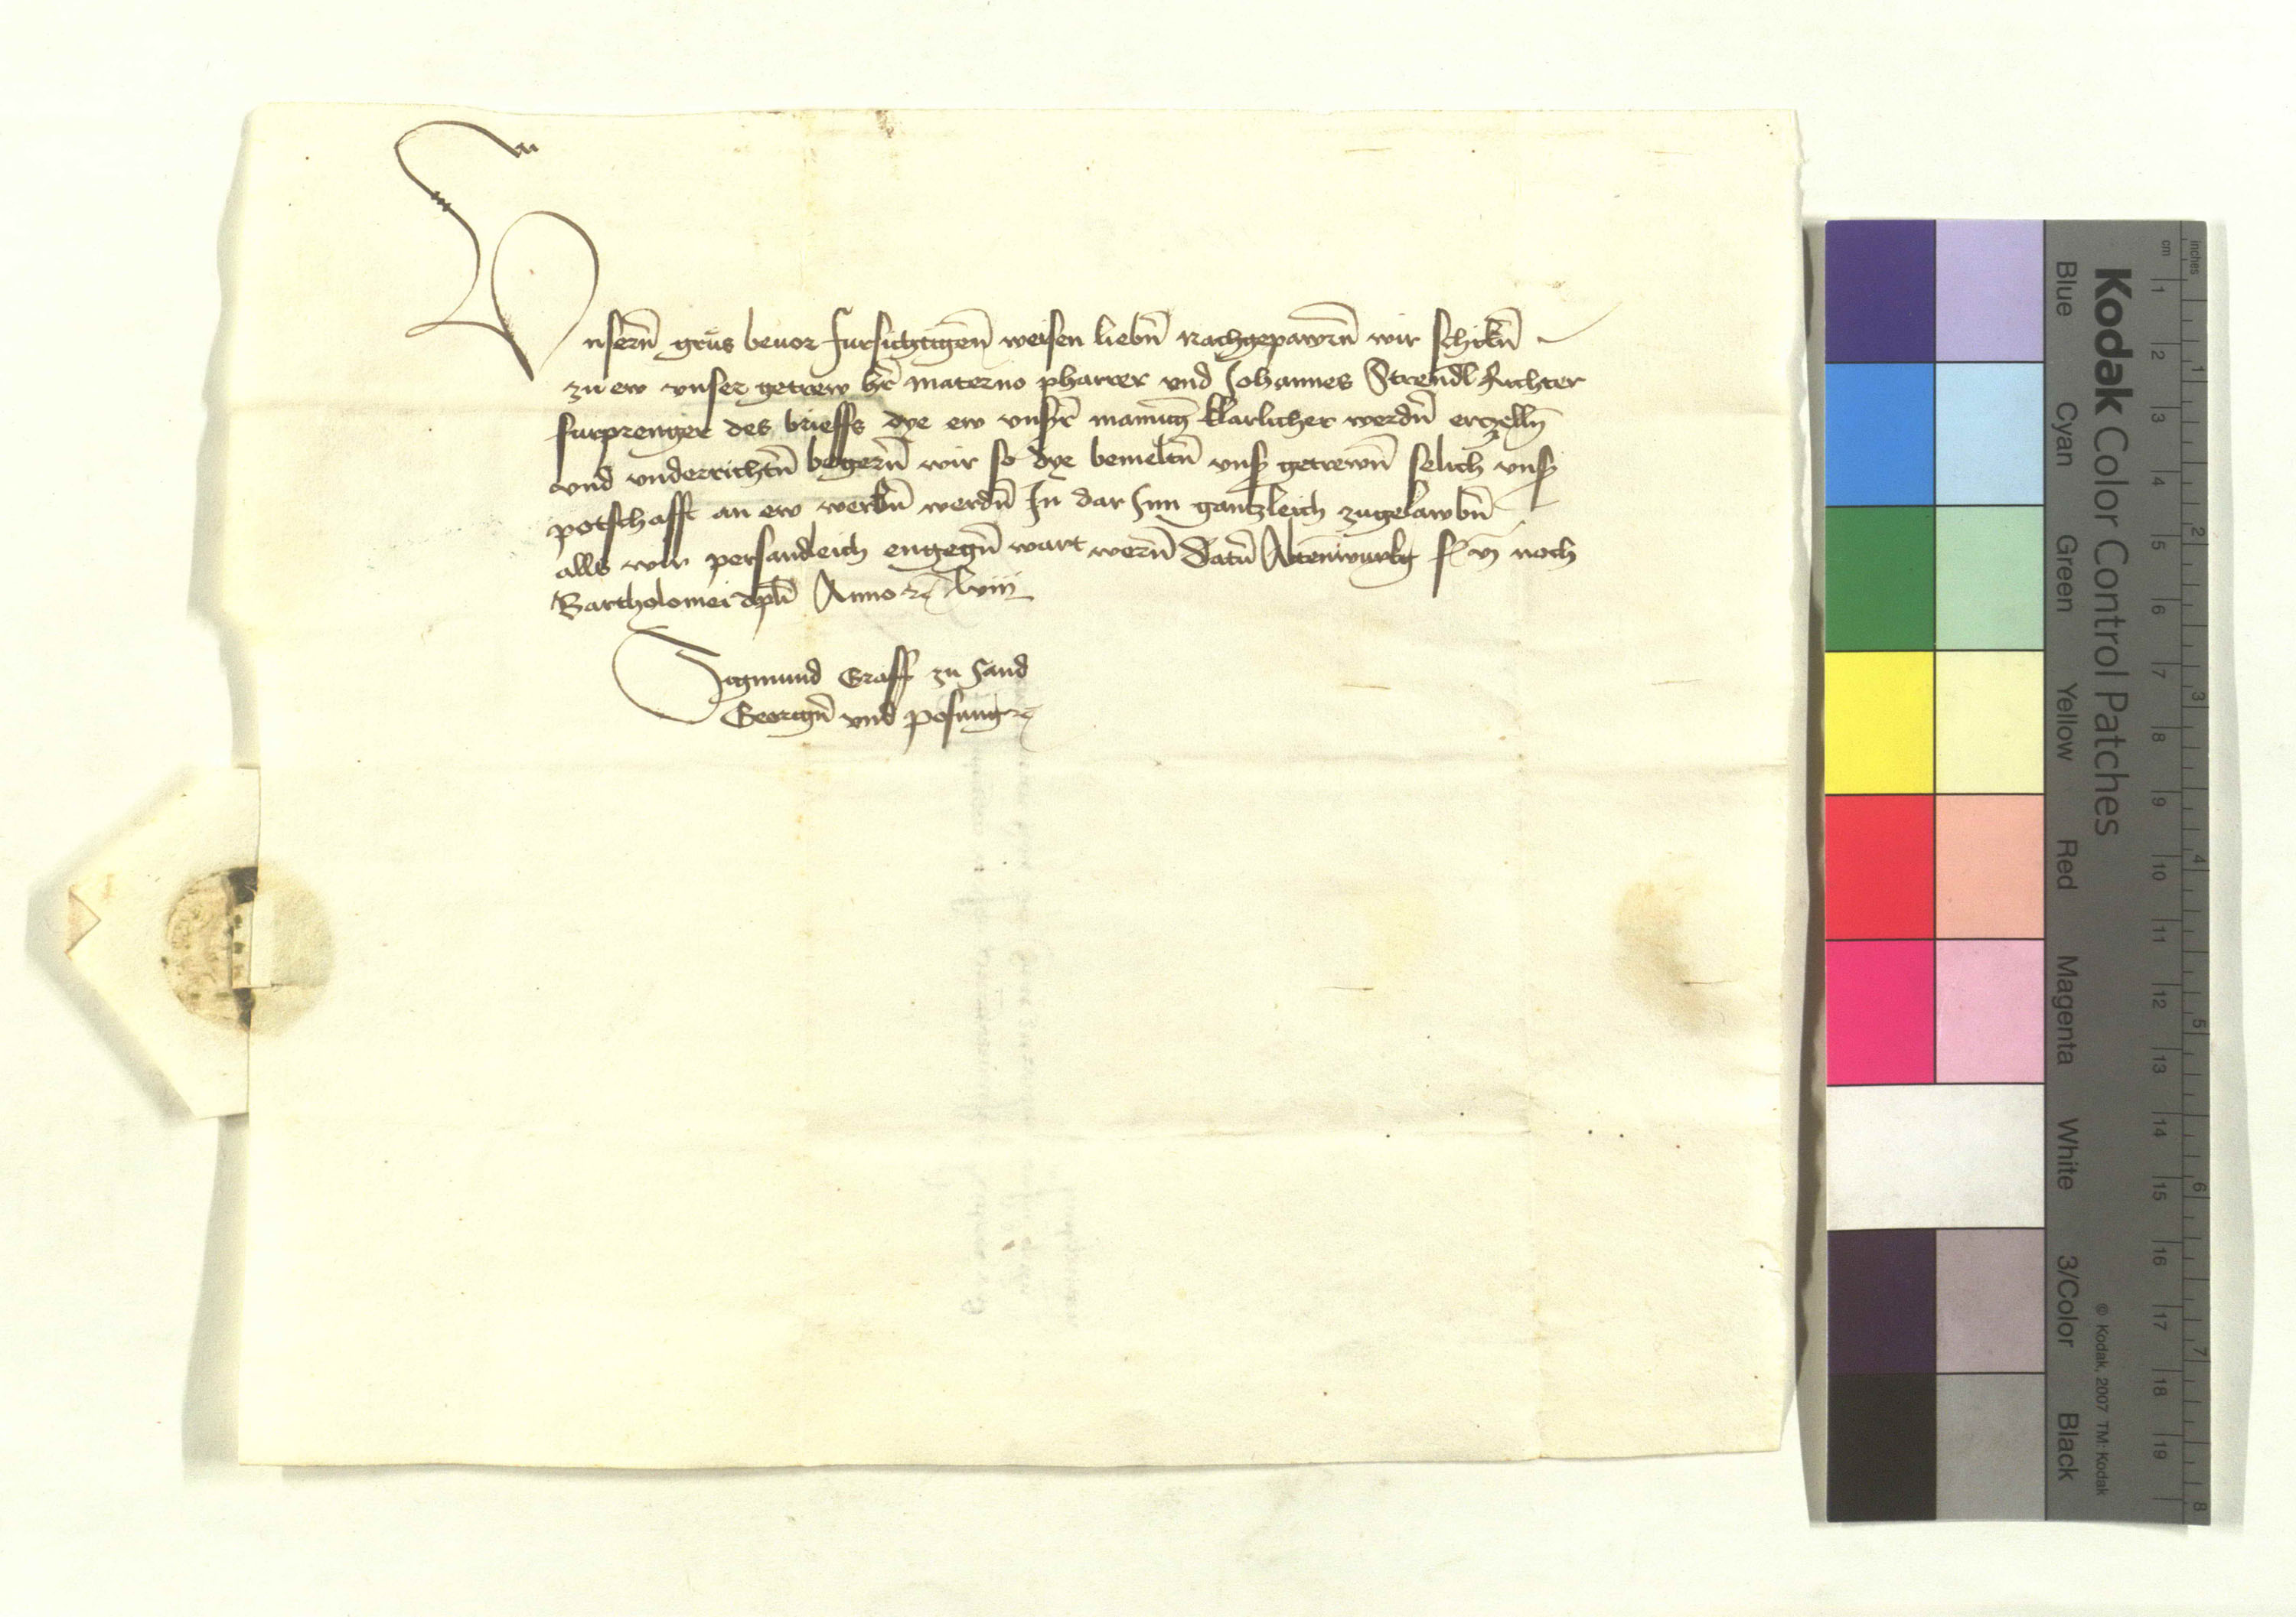 Vnsern̄ grus beuor fursichtigen̄ weisen liebn̄ nachgepawrn̄ wir schikn̄
zu ew vnser getrew hr̄ materno pharrer vnd Johannes Strendl Richter
furprenger des brieffs dye ew vnsr̄ manung klarlicher werdn̄ erczelln̄
vnd vnderrichtn̄ begern̄ wir so dye bemeltn̄ vnsȝ getrewn̄ solich vnsȝ
potschafft an ew werbn̄ werdn̄ In dar Inn ganczleich zugelawbn̄
alls wir personleich engegn̄ wart wern̄ Datū Altenwurkg noch
Bartholomei apli Anno ꝛc̄ lviii
Sigmund Graff zu Sand
Georign̄ vnd posing ꝛc̄
Kodak Color Control Patches
Blue Cyan Green Yellow Red Magenta White 3/Color Black
© Kodak, 2007 TM: Kodak
inches 1 2 3 4 5 6 7 8
cm 1 2 3 4 5 6 7 8 9 10 11 12 13 14 15 16 17 18 19